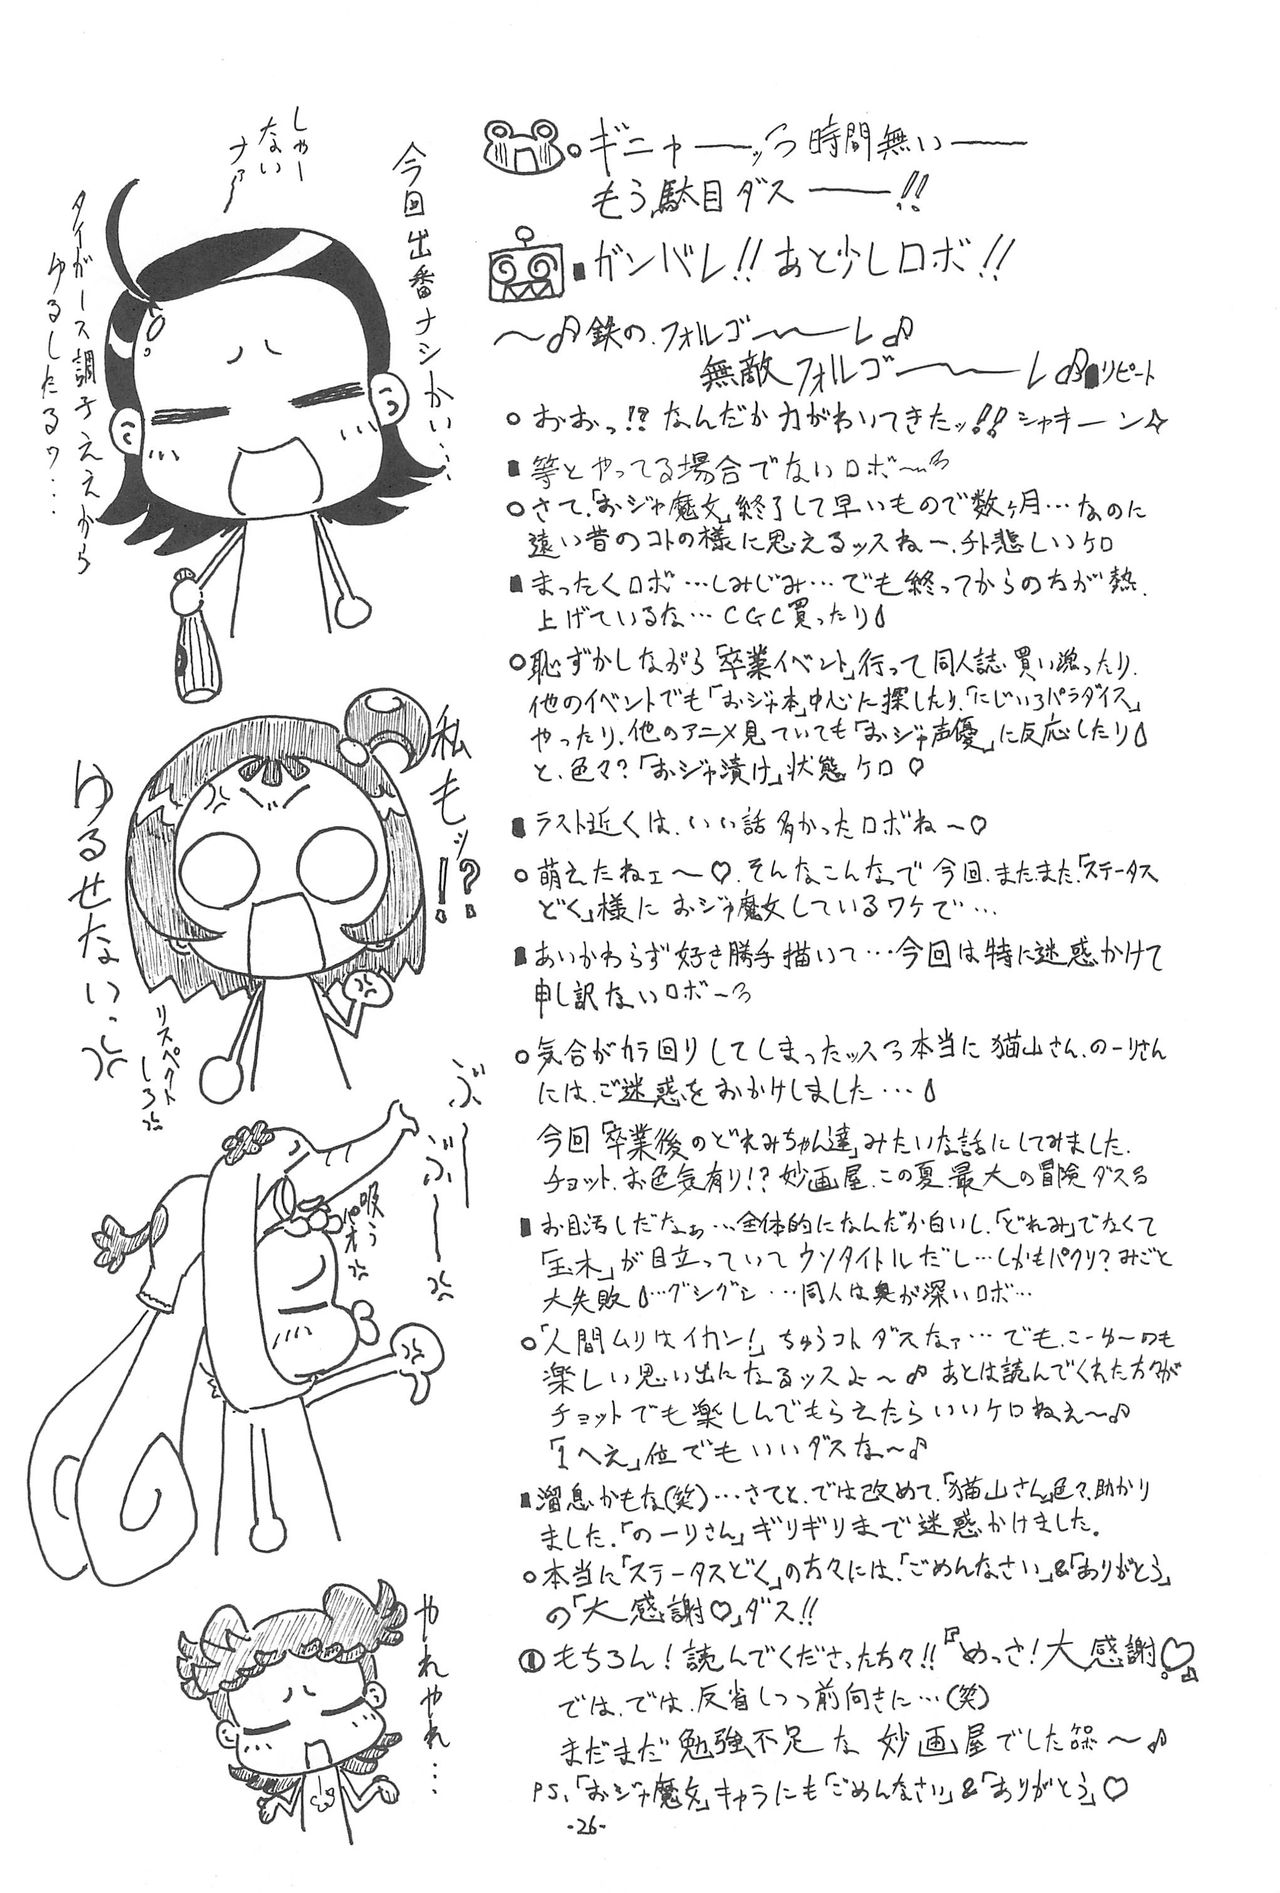 ギニャーーッ 時間無いーー
もう駄目ダスーー!!
ガンバレ!! あと少しロボ!!
〜♪鉄の、フォルゴーーーレ♪
無敵フォルゴーーーレ♪ リピート
○おおっ!? なんだか力がわいてきたッ!! シャキーン☆
■等とやってる場合でないロボ〜
○さて、「おジャ魔女」終了して早いもので数ヶ月…なのに
遠い昔のコトの様に思えるッスねー、チト悲しいケロ
■まったくロボ…しみじみ…でも終ってからの方が熱、
上げているな…CGC買ったり
○恥ずかしながら「卒業イベント」行って同人誌買い漁ったり、
他のイベントでも「おジャ本」中心に探したり、「にじいろパラダイス」
やったり、他のアニメ見ていても「おジャ声優」に反応したり
と、色々?「おジャ漬け」状態ケロ♡
■ラスト近くは、いい話多かったロボね〜♡
○萌えたねェ〜♡、そんなこんなで今回、またまた「ステータス
どく」様に おジャ魔女しているワケで…
■あいかわらず好き勝手描いて…今回は特に迷惑かけて
申し訳ないロボ〜
○気合がカラ回りしてしまったッス 本当に猫山さん、のーりさん
には、ご迷惑をおかけしました…
今回「卒業後のどれみちゃん達」みたいな話にしてみました、
チョット、お色気有り!? 妙画屋、この夏、最大の冒険ダス
■お目汚しだなぁ…全体的になんだか白いし、「どれみ」でなくて
「玉木」が目立っていてウソタイトルだし…しかもパクリ? みごと
大失敗…グシグシ…同人は奥が深いロボ…
○「人間ムリはイカン!」ちゅうコトダスなァ…でも、こーゆーのも
楽しい思い出になるッスよ〜♪ あとは読んでくれた方々が
チョットでも楽しんでもらえたらいいケロねぇ〜♪
「1へえ」位でもいいダスな〜♪
■溜息かもな(笑)…さてと、では改めて、「猫山さん」色々、助かり
ました、「のーりさん」ギリギリまで迷惑かけました。
○本当に「ステータスどく」の方々には、「ごめんなさい」&「ありがとう」
の「大感謝♡」ダス!!
もちろん! 読んでくださった方々!!『めっさ! 大感謝♡』
では、では、反省しつつ前向きに…(笑)
まだまだ勉強不足な 妙画屋でした 〜♪
PS、「おジャ魔女」キャラにも「ごめんなさい」&「ありがとう」♡
-26-
今回出番ナシかい…
しゃー
ない
ナァ〜
タイガース調子ええから
ゆるしたるワ…
私もッ!?
ゆるせない、
リスペクト
しろ
ぶーー
ぶーー
吸う
パオ
やれやれ…